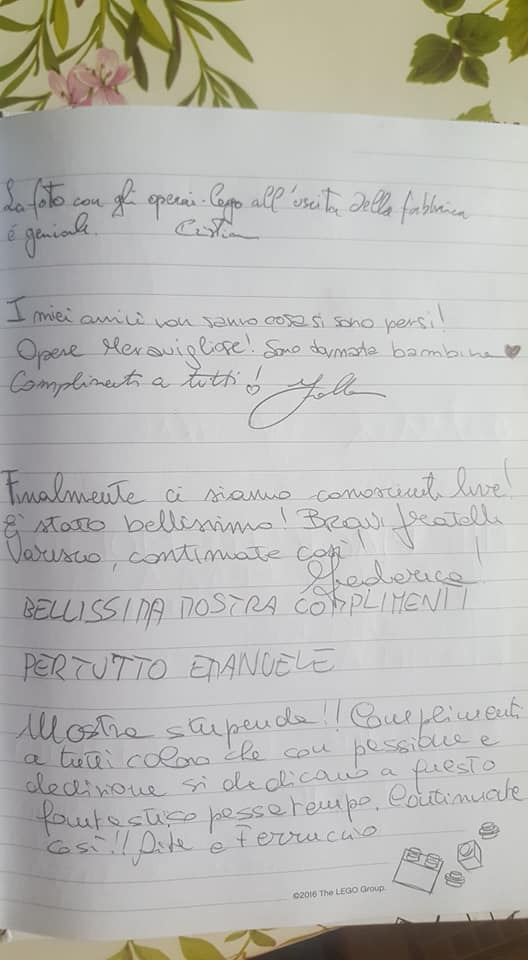 La foto con gli operai Lego all'uscita della fabbrica
è geniale. Cristian
I miei amici non sanno cosa si sono persi!
Opere Meravigliose! Sono tornata bambina
Complimenti a tutti!
Finalmente ci siamo conosciuti live!
E' stato bellissimo! Bravi fratelli
Varisco, continuate così!
Federica
BELLISSIMA MOSTRA COMPLIMENTI
PER TUTTO EMANUELE
Mostra stupenda!! Complimenti
a tutti coloro che con passione e
dedizione si dedicano a questo
fantastico passatempo. Continuate
così!! e Ferruccio
©2016 The LEGO Group.